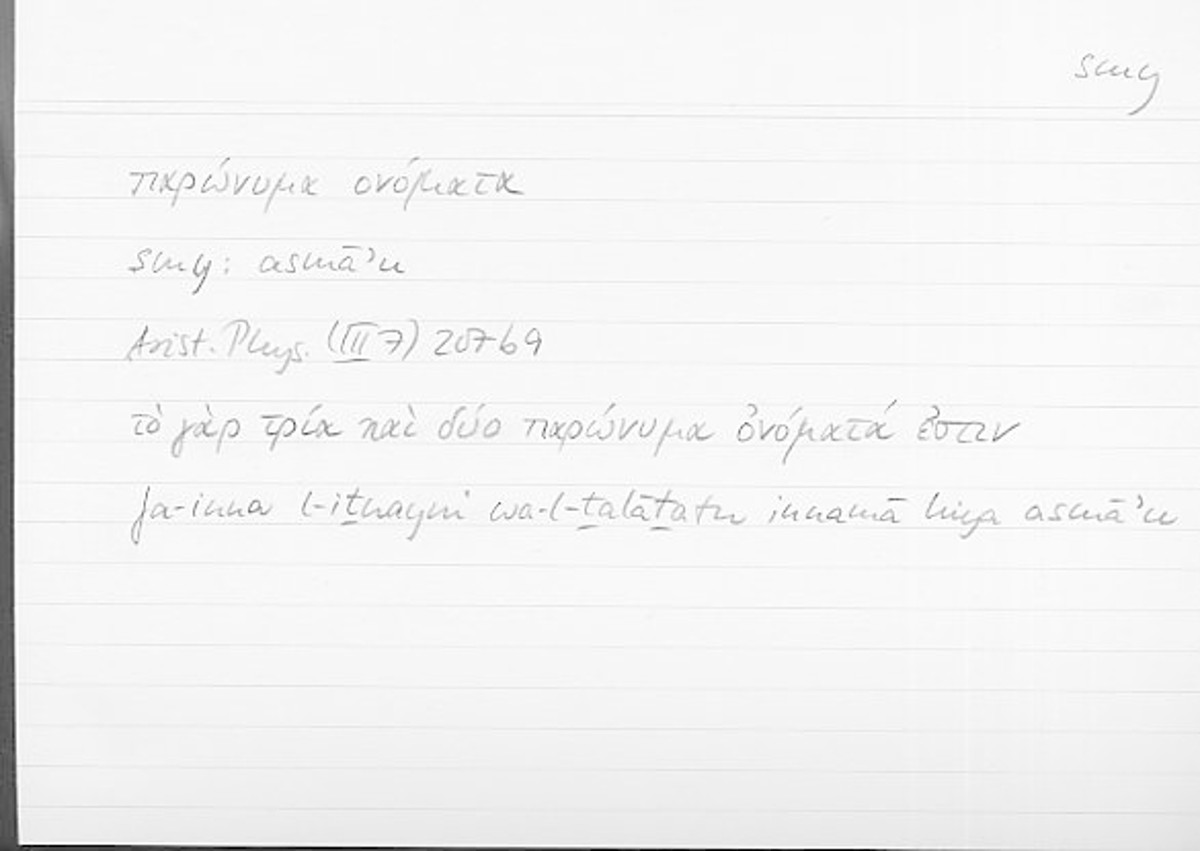 smy
παρώνυμα ονόματα
smy: asmā’u
Arist. Phys. (III 7) 207b9
τὸ γὰρ τρία καὶ δύο παρώνυμα ὀνόματά ἐστιν
fa-inna l-iṯnayni wa-l-ṯalāṯatu innamā hiya asmā’u